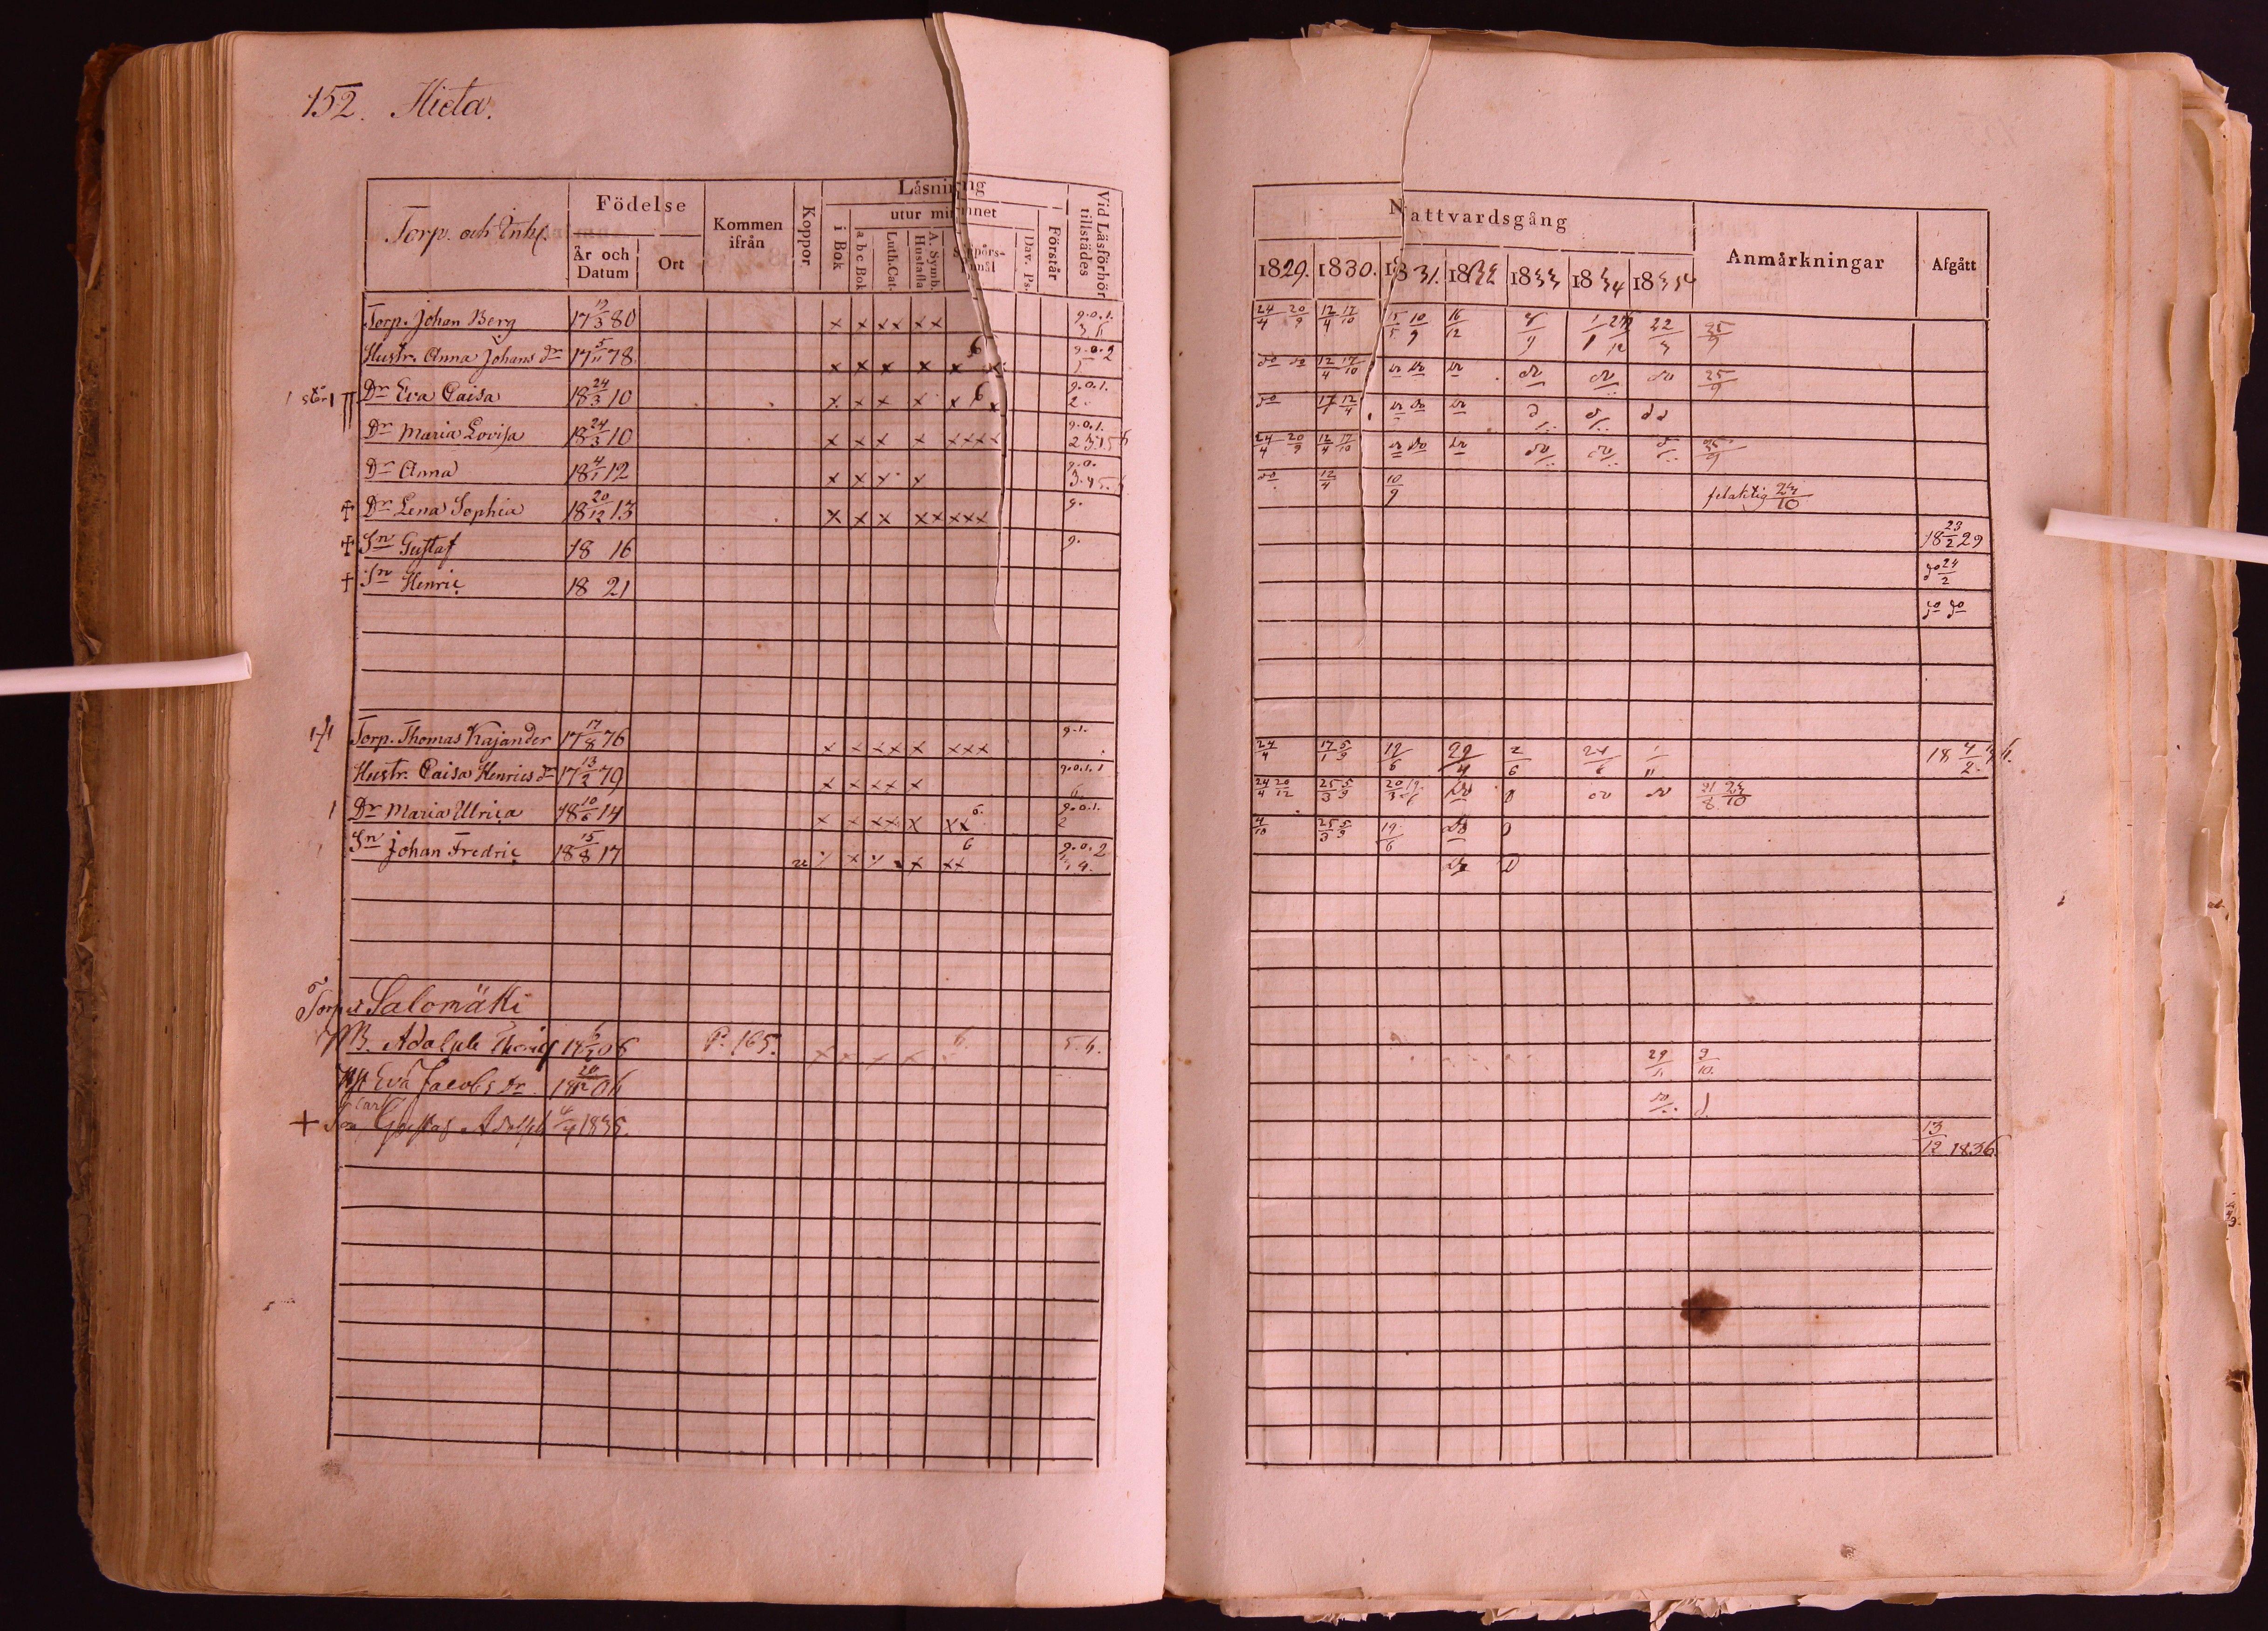 152. Hieta.
Torp. och Inh.
Födelse
År och Datum
Ort
Kommen ifrån
Koppor
Läsning
i Bok
utur minnet
a b c Bok
Luth. Cat.
A. Symb. Hustafla
Spörs-
Dav. Ps.
Förstår
Vid Läsförhör tillstädes
Torp. Johan Berg 17 12/3 80 x x x x x x 9.0.1.
Hustr. Anna Johans dr 17 5/11 78 x x x x x x 6 9.0.2
Dr Eva Caisa 18 24/3 10 x x x x x x 6 9.0.1. 2.
Dr Maria Lovisa 18 24/3 10 x x x x x x x x 9.0.1.
Dr Anna 18 4/1 12 x x x x 9.0.
Dr Lena Sophia 18 20/12 13 x x x x x x x x 9.
Sn Gustaf 18 16 9.
Sn Henric 18 21
Torp. Thomas Kajander 17 17/8 76 x x x x x x x x 9.1.
Hustr. Caisa Henrics dr 17 13/2 79 x x x x x 9.0.1.1
Dr Maria Ulrica 18 10/6 14 x x x x x x x 6. 9.0.1. 2
Sn Johan Fredric 18 15/8 17 x x x x x x 6 9.0.2
Torpet Salomäki
Adolph P. 165. 5.6.
Eva Jacobs dr 18 20/12 06
Carl
+ Gustaf Adolph 4/4 1835.
Nattvardsgång
Anmärkningar
Afgått
1829. 1830. 1831. 1832 1833 1834 1835
24/4 20/9 12/4 17/10 15/5 10/9 16/12 22/3 25/9
do do 12/4 17/10 do do do do do do 25/9
do 17/1 12/4 do do do
24/4 20/9 12/4 17/10 do do do do do
do 12/4 10/9 24/10
18 23/2 29
do 24/2
do do
24/4 17/1 5/9 19/6 29/4 2/6 24/6 1/11
24/4 20/12 25/3 5/9 20/3 19/6 do do do 24/10
4/10 25/3 5/9 19/6 do
do
29/11 9/10.
do
13/12 1836.